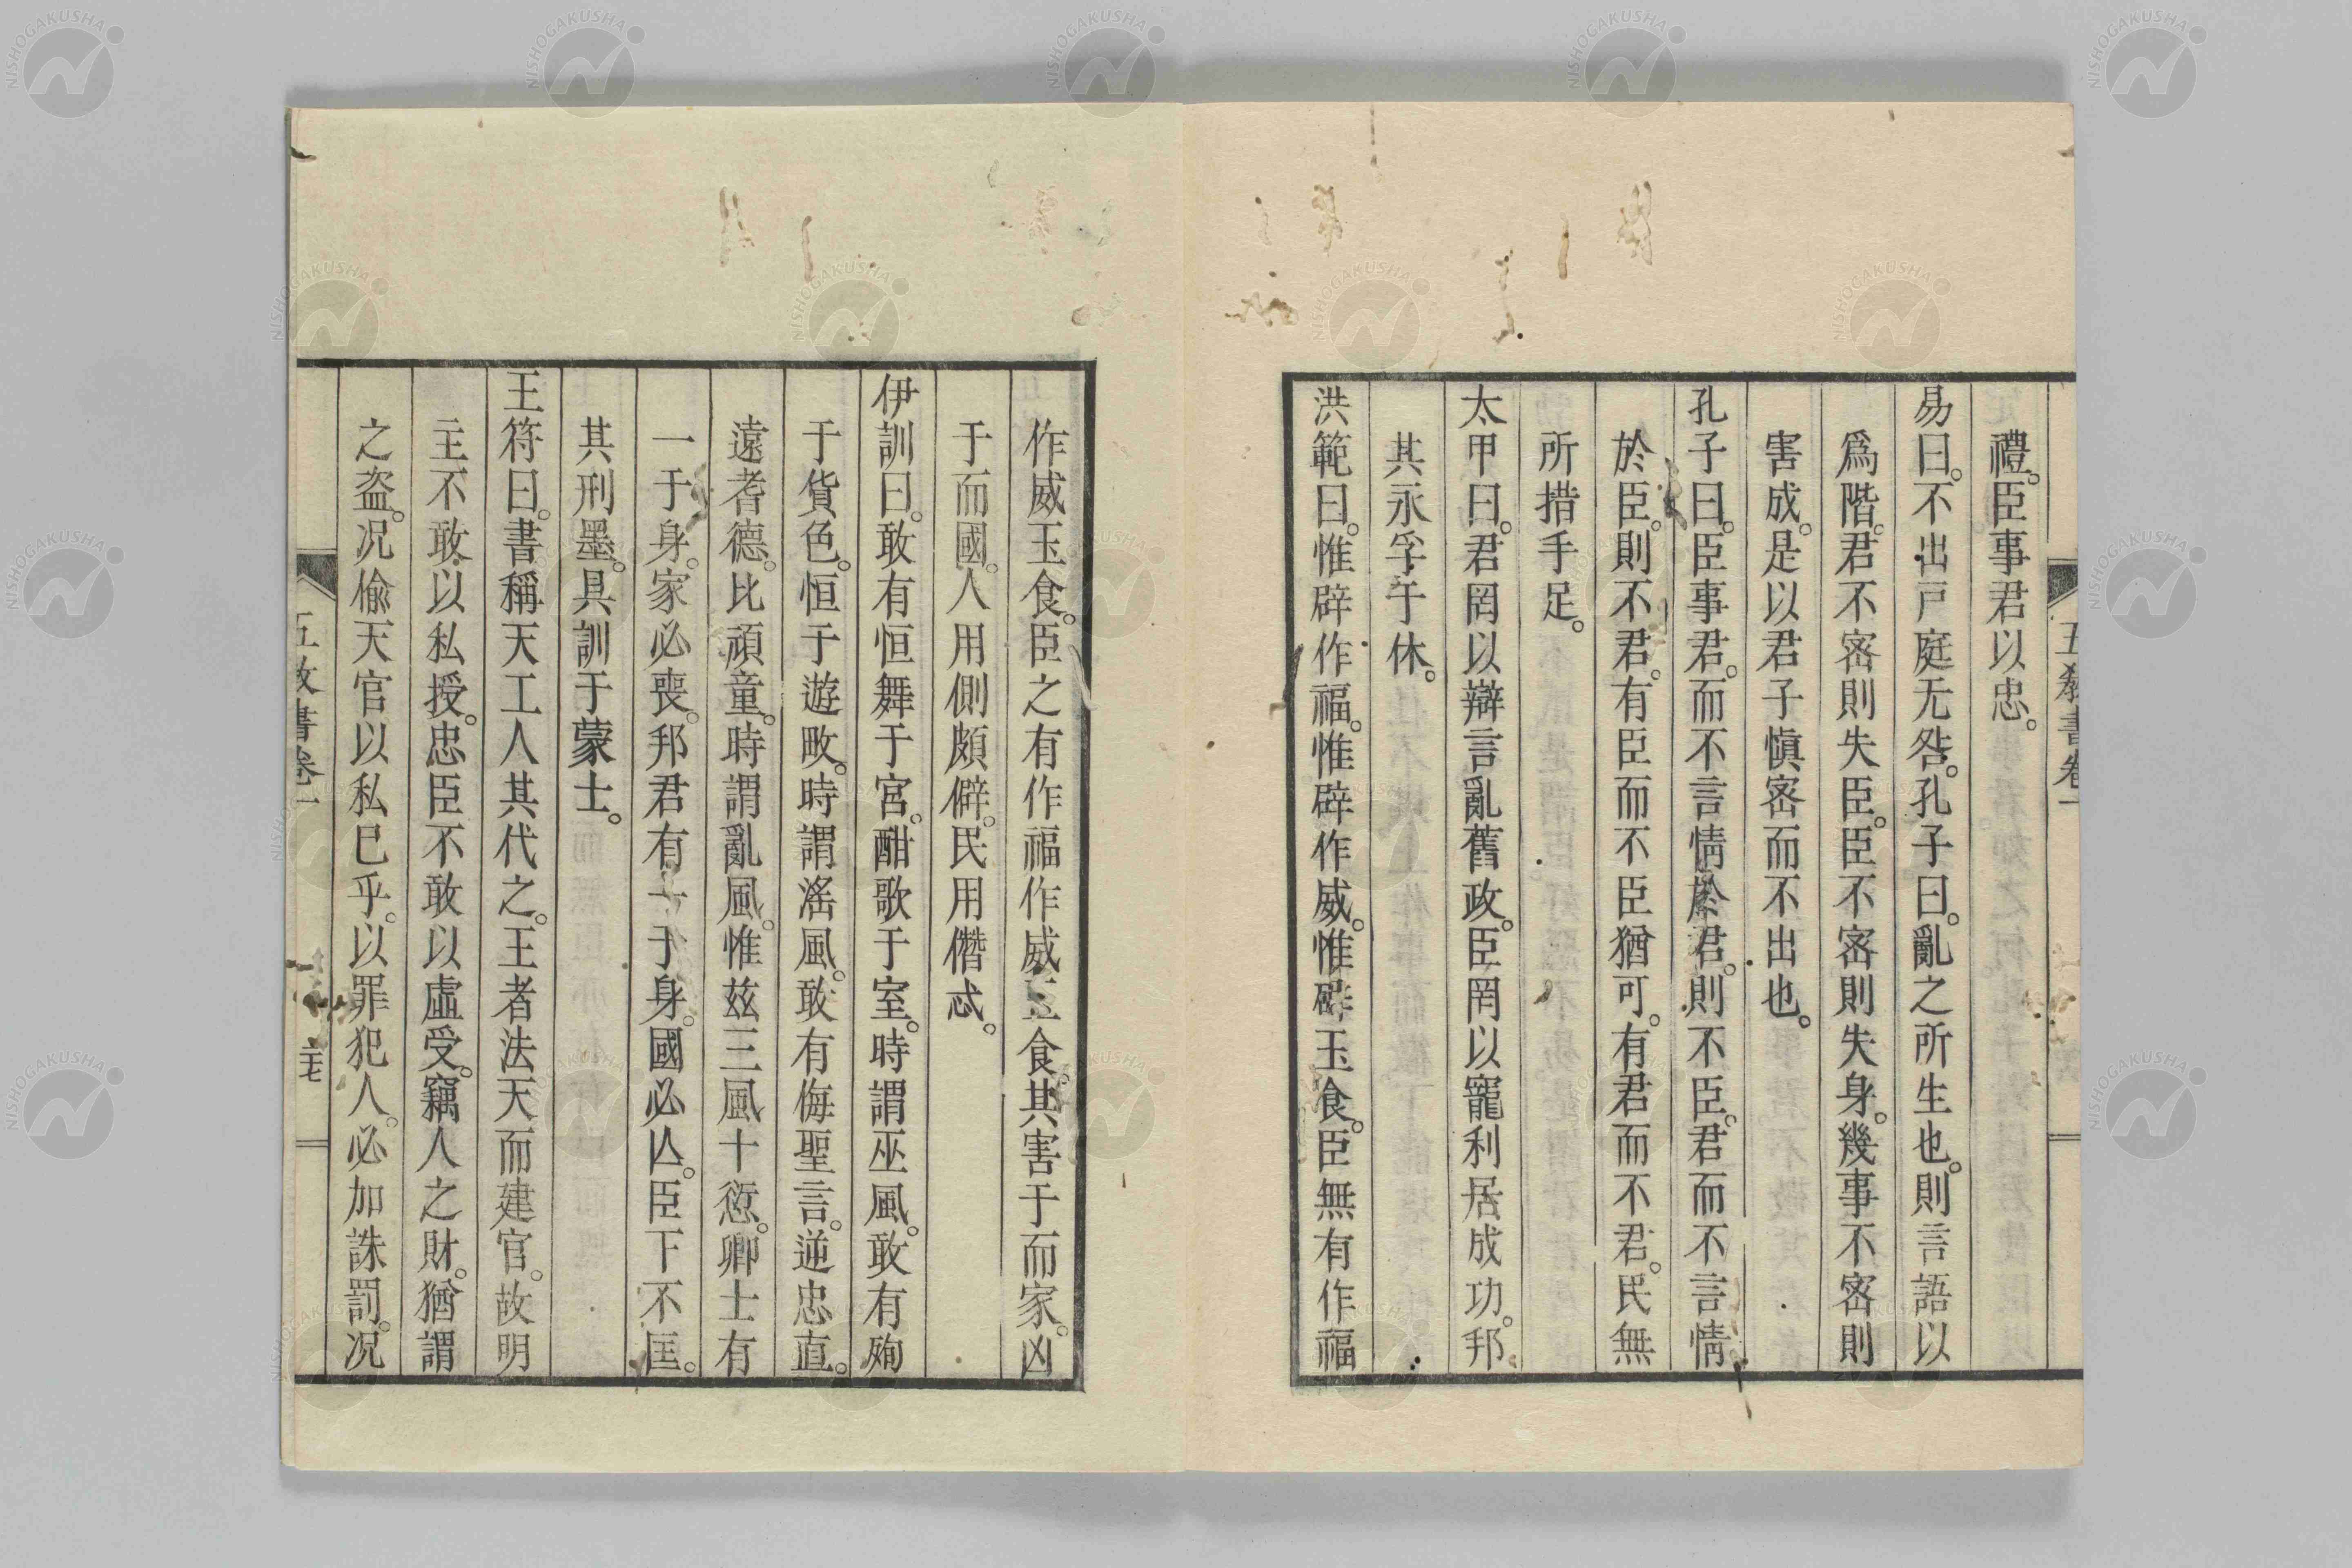 五教書卷一
禮。臣事君以忠。
易曰。不出戸庭无咎。孔子曰。亂之所生也。則言語以
爲階。君不密則失臣。臣不密則失身。幾事不密則
害成。是以君子愼密而不出也。
孔子曰。臣事君。而不言情於君。則不臣。君而不言情
於臣。則不君。有臣而不臣猶可。有君而不君。民無
所措手足。
太甲曰。君罔以辯言亂舊政。臣罔以寵利居成功。邦
其永孚于休。
洪範曰。惟辟作福。惟辟作威。惟辟玉食。臣無有作福
作威玉食。臣之有作福作威玉食。其害于而家。凶
于而國。人用側頗僻。民用僭忒。
伊訓曰。敢有恒舞于宮。酣歌于室。時謂巫風。敢有殉
于貨色。恒于遊畋。時謂滛風。敢有侮聖言。逆忠直。
遠耆德。比頑童。時謂亂風。惟玆三風十愆。卿士有
一于身。家必喪。邦君有一于身。國必亾。臣下不匡。
其刑墨。具訓于蒙士。
王符曰。書稱天工人其代之。王者法天而建官。故明
主不敢以私授。忠臣不敢以虛受。竊人之財。猶謂
之盗。况偸天官以私己乎。以罪犯人。必加誅罰。况
五敎書卷一
二十七
NISHOGAKUSHA